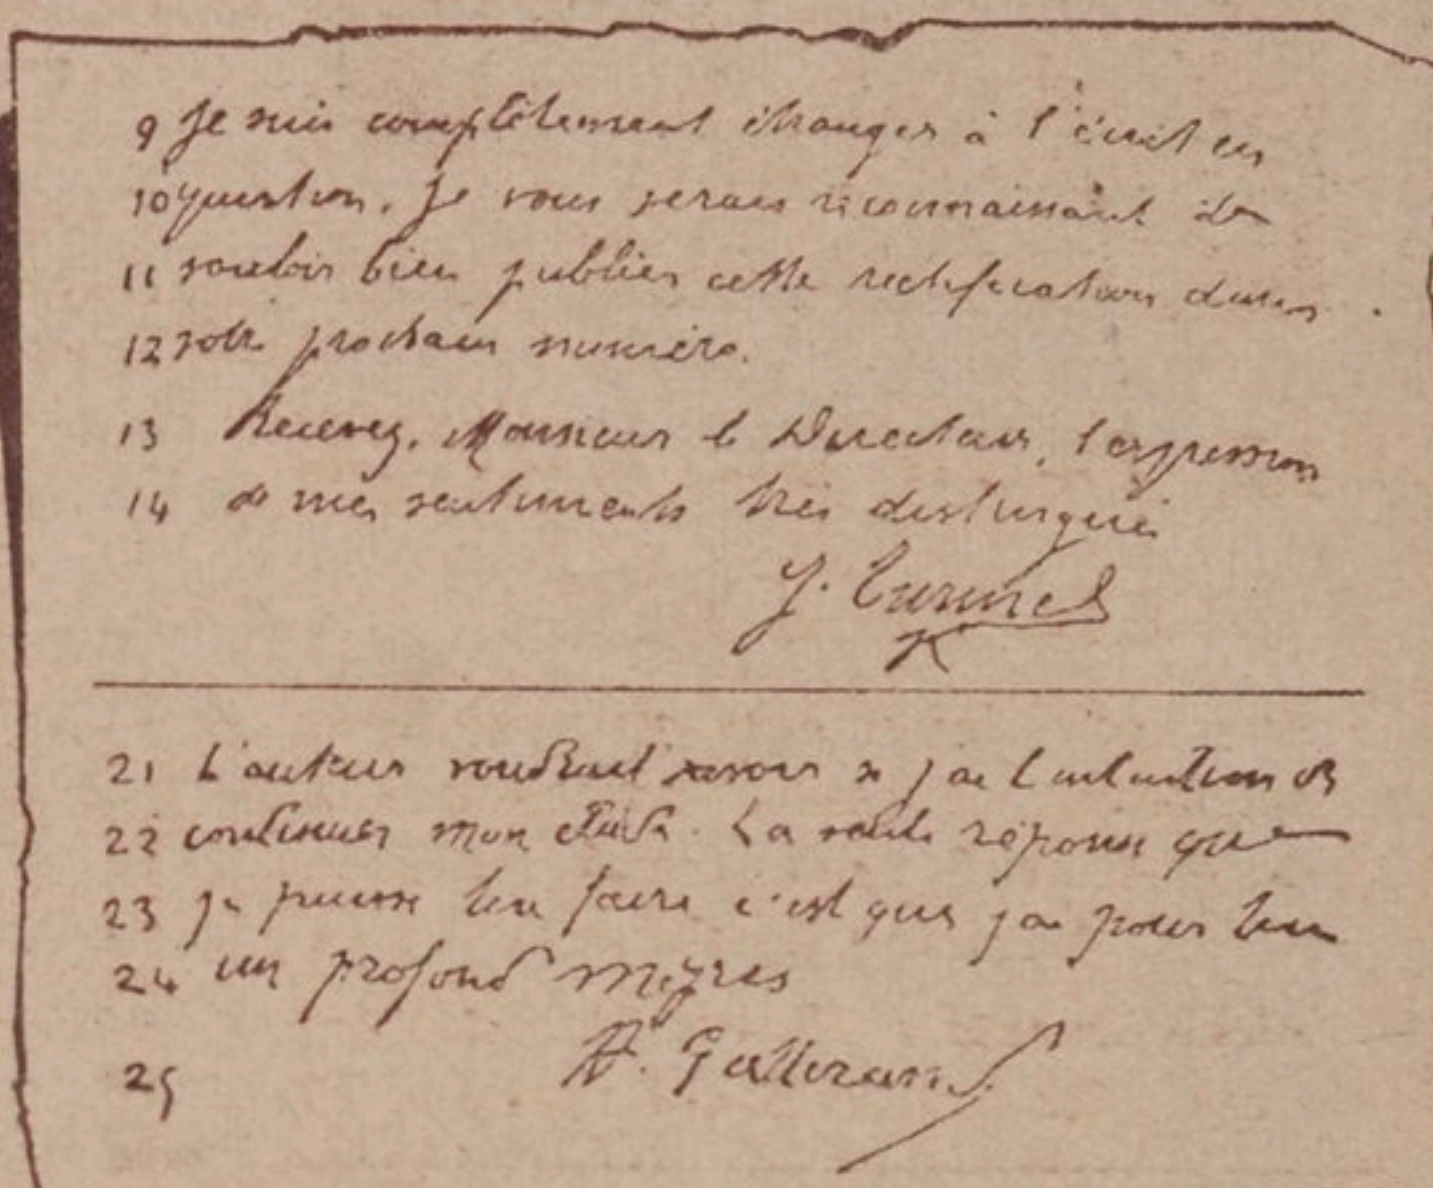 9 Je suis complètement étranger à l'écrit en
10 question. Je vous serais reconnaissant de
11 vouloir bien publier cette rectification dans
12 votre prochain numéro.
13 Recevez, Monsieur le Directeur, l'expression
14 de mes sentiments très distingués
J. Turmel
21 L'auteur voudrait savoir si j'ai l'intention de
22 continuer mon étude. La seule réponse que
23 je puisse lui faire c'est que j'ai pour lui
24 un profond mépris
25 A. Gallerand